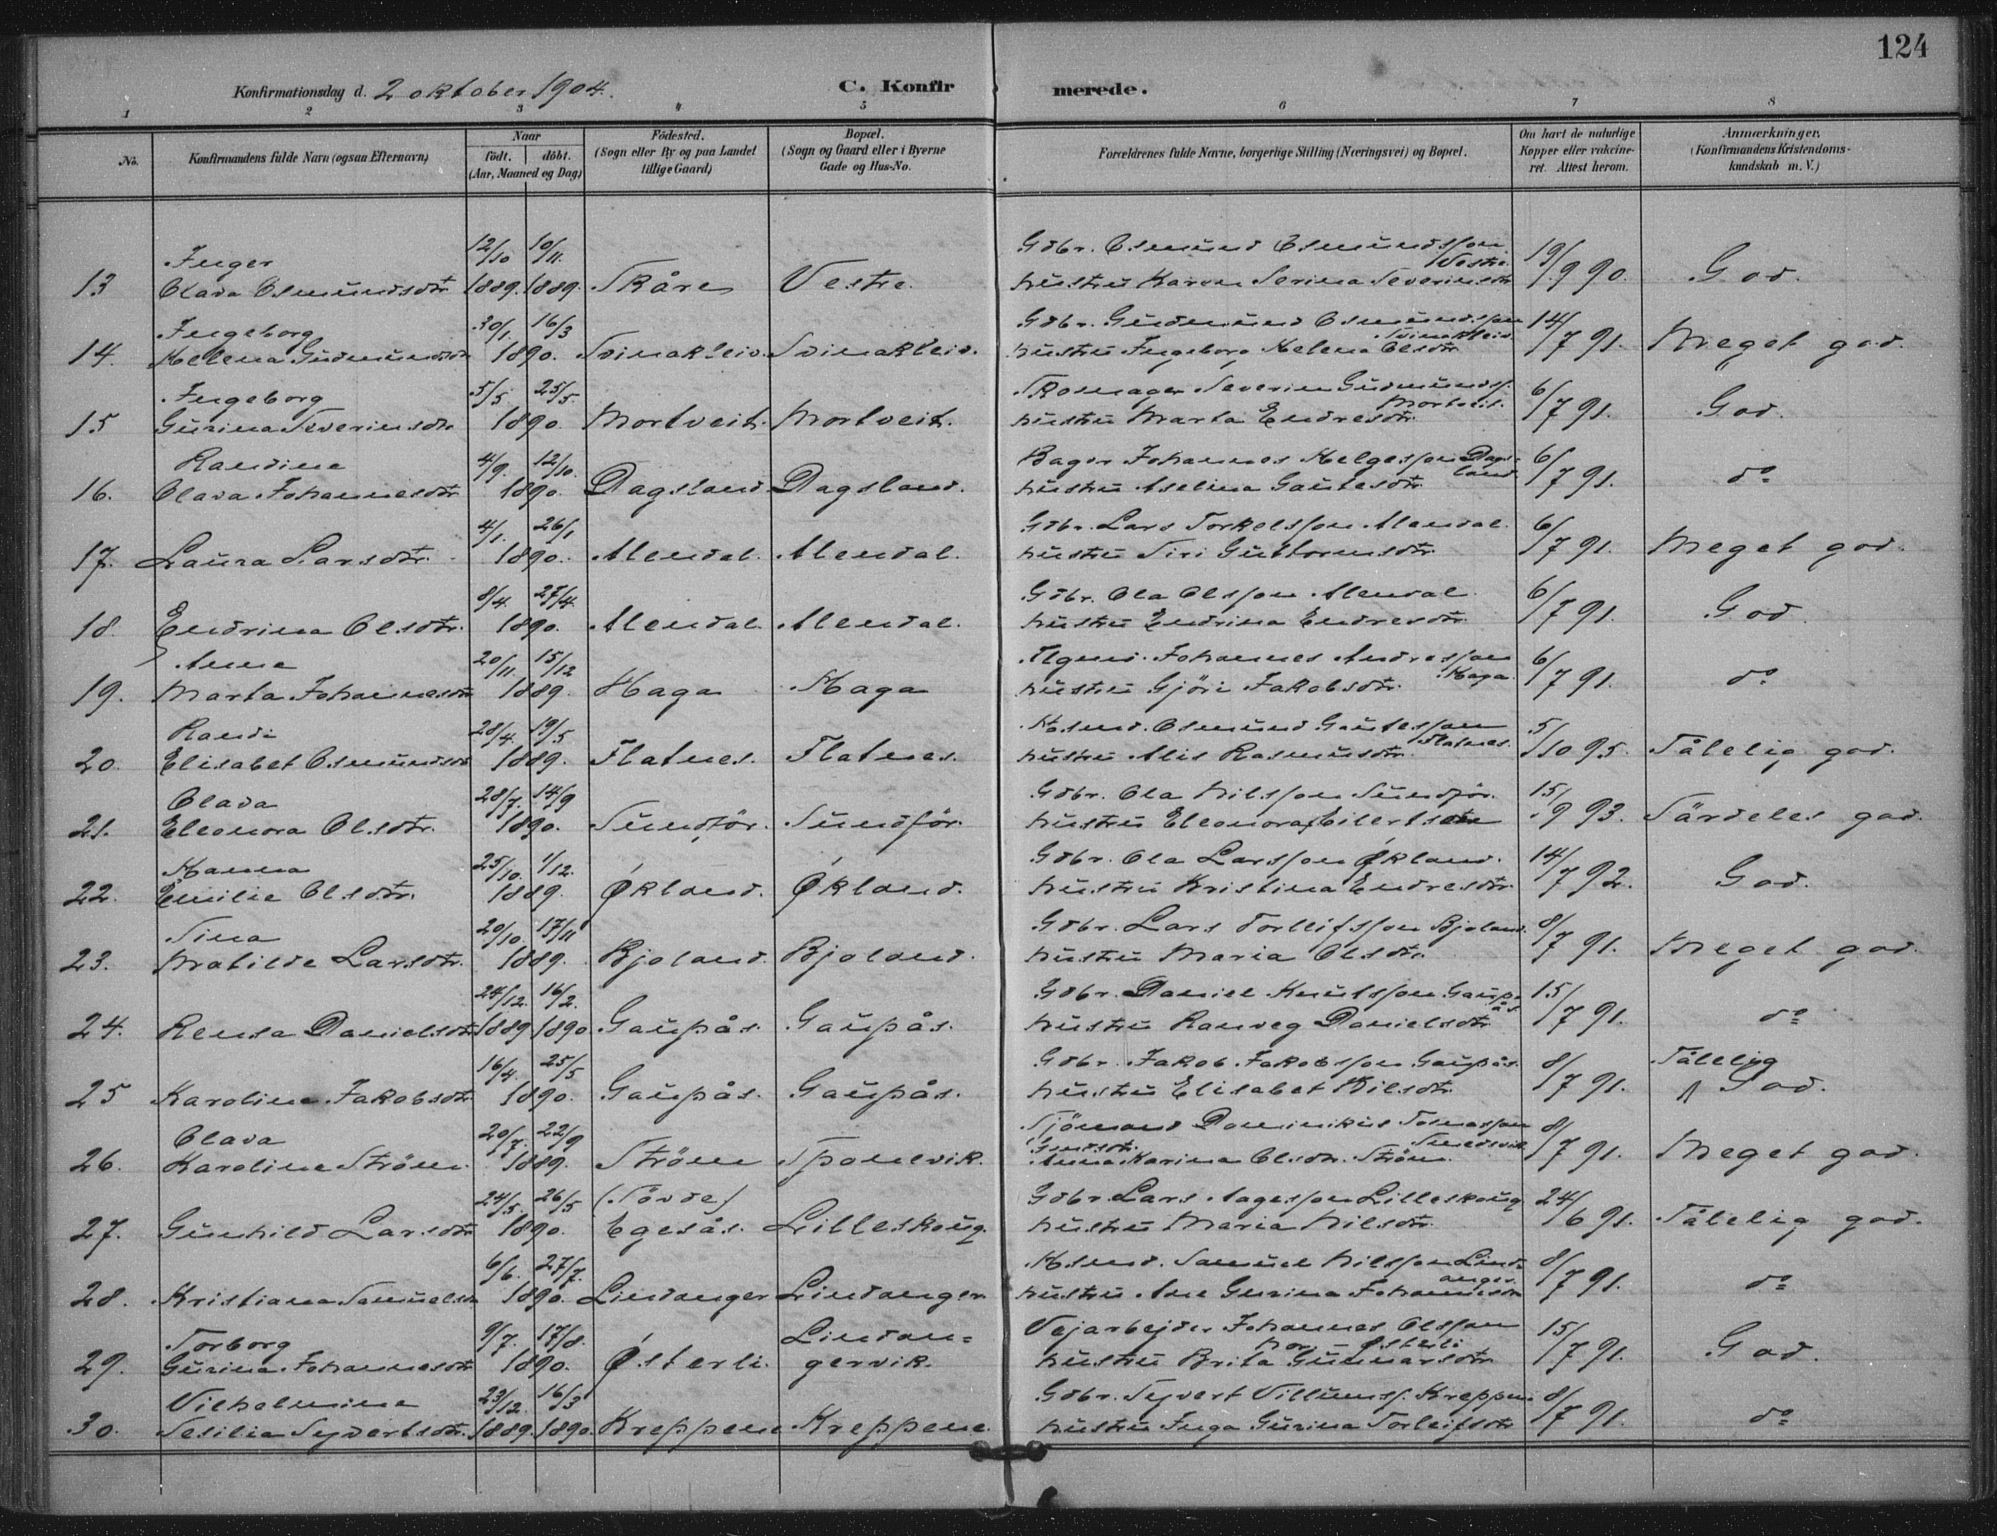 124
Konfirmationsdag d. 2 oktober 1904.
C. Konfirmerede.
1 2 3 4 5 6 7 8
No.
Konfirmandens fulde Navn (ogsaa Efternavn)
Naar
födt. | döbt.
(Aar, Maaned og Dag)
Födested.
(Sogn eller By og paa Landet
tillige Gaard)
Bopæl.
(Sogn og Gaard eller i Byerne
Gade og Hus-No.
Forældrenes fulde Navne, borgerlige Stilling (Næringsvei) og Bopæl.
Om havt de naturlige
Kopper eller vakcine-
ret. Attest herom.
Anmærkninger.
(Konfirmandens Kristendoms-
kundskab m. V.)
Inger 12/10 10/11 Gdbr. Osmund Osmundsson 19/
Vestre
13 Olava Osmundsdtr 1889. 1889. Skåre Vestre. hustru Karen Serina Severinsdtr /9 90. God.
Ingeborg 30/1 16/3 Gdbr. Gudmund Osmundsson 14/
Svinakleiv
14. Helena Gudmundsdtr 1890. Svinakleiv. Svinakleiv. hustru Ingeborg Helena Olsdtr /7 91. Meget god.
Ingeborg 5/5 25/5. Skomager Severin Gudmunds. 6/
Mortveit.
15 Gurina Severinsdtr 1890. Mortveit. Mortveit. hustru Marta Endresdtr. /7 91. God.
Randina 4/9. 12/10. Bager Johannes Helgesson Dags- 6/
land.
16. Olava Johannesdtr 1890. Dagsland. Dagsland. hustru Aselina Gautesdtr. /7 91. do
4/1. 26/1 Gdbr. Lars Torkelsson Alendal. 6/
17. Laura Larsdtr. 1890. Alendal. Alendal. hustru Siri Guttormsdtr. /7 91. Meget god.
8/4. 27/4. Gdbr. Ola Olsson Alendal. 6/
18. Endrina Olsdtr. 1890. Alendal. Alendal. hustru Endrina Endresdtr. /7 91. God.
Anna 20/11. 15/12 Johannes Andresson 6/
Haga.
19. Marta Johannesdtr 1889. Haga Haga hustru Gjöri Jakobsdtr. /7 91. do
Randi 28/4. 19/5 Osmund Gautesson 5/
Flatnes.
20. Elisabet Osmundsdtr 1889. Flatnes. Flatnes. hustru Alis Rasmusdtr. /10 95. Tålelig god.
Olava 28/7. 14/9 Gdbr. Ola Nilsson Sundför. 15/
21. Eleonora Olsdtr. 1890. Sundför. Sundför. hustru Eleonora Eilertsdtr /9 93. Særdeles god.
Hanna 25/10. 1/12. Gdbr. Ola Larsson Økland. 14/
22. Emilie Olsdtr. 1889. Økland. Økland. hustru Kristina Endresdtr. /7 92. God.
Sina 20/10 17/11 Gdbr. Lars Torleifsson Bjoland. 8/
23. Matilde Larsdtr. 1889. Bjoland. Bjoland. hustru Maria Olsdtr. /7 91. Meget god.
24/12. 16/2. Gdbr. Daniel Knutsson Gaup- 15/
ås.
24. Rensa Danielsdtr 1889 1890. Gaupås. Gaupås. hustru Ranveg Danielsdtr. /7 91. do
16/4. 25/5 Gdbr. Jakob Jakobsson Gaupås. 8/ Tålelig
25 Karoline Jakobsdtr 1890. Gaupås. Gaupås. hustru Elisabet Nilsdtr. /7 91. God.
Olava 20/7. 22/9 Sjömand Dominikus Tomasson 8/
Smedsvik
26. Karoline Ström. 1889. Ström Spanevik. Anna Karina Olsdtr. Ström. /7 91. Meget god.
24/5. 26/5 (Tövde) Gdbr. Lars Aagesson Lilleskoug 24/
27. Gunhild Larsdtr 1890. Egesås. Lilleskoug. hustru Maria Nilsdtr. /6 91. Tålelig god.
6/6. 27/7. Samuel Nilsson Lind- 8/
anger.
28. Kristiana Samuelsdtr 1890. Lindanger Lindanger hustru Ane Gurina Johannesdtr /7 91. do
Torborg 9/7. 17/8. Lindan= Vejarbejder Johannes Olsson 15/
Østerli
29. Gurina Johannesdtr 1890. Østerli. gervik. hustru Brita Gunnarsdtr. /7 91. God.
Vilhelmine 23/12. 16/3 Gdbr. Syvert Villums. Kreppene 8/
30. Sesilia Syvertsdtr. 1889. 1890. Kreppene Kreppene. hustru Inga Gurina Torleifsdtr /7 91. do